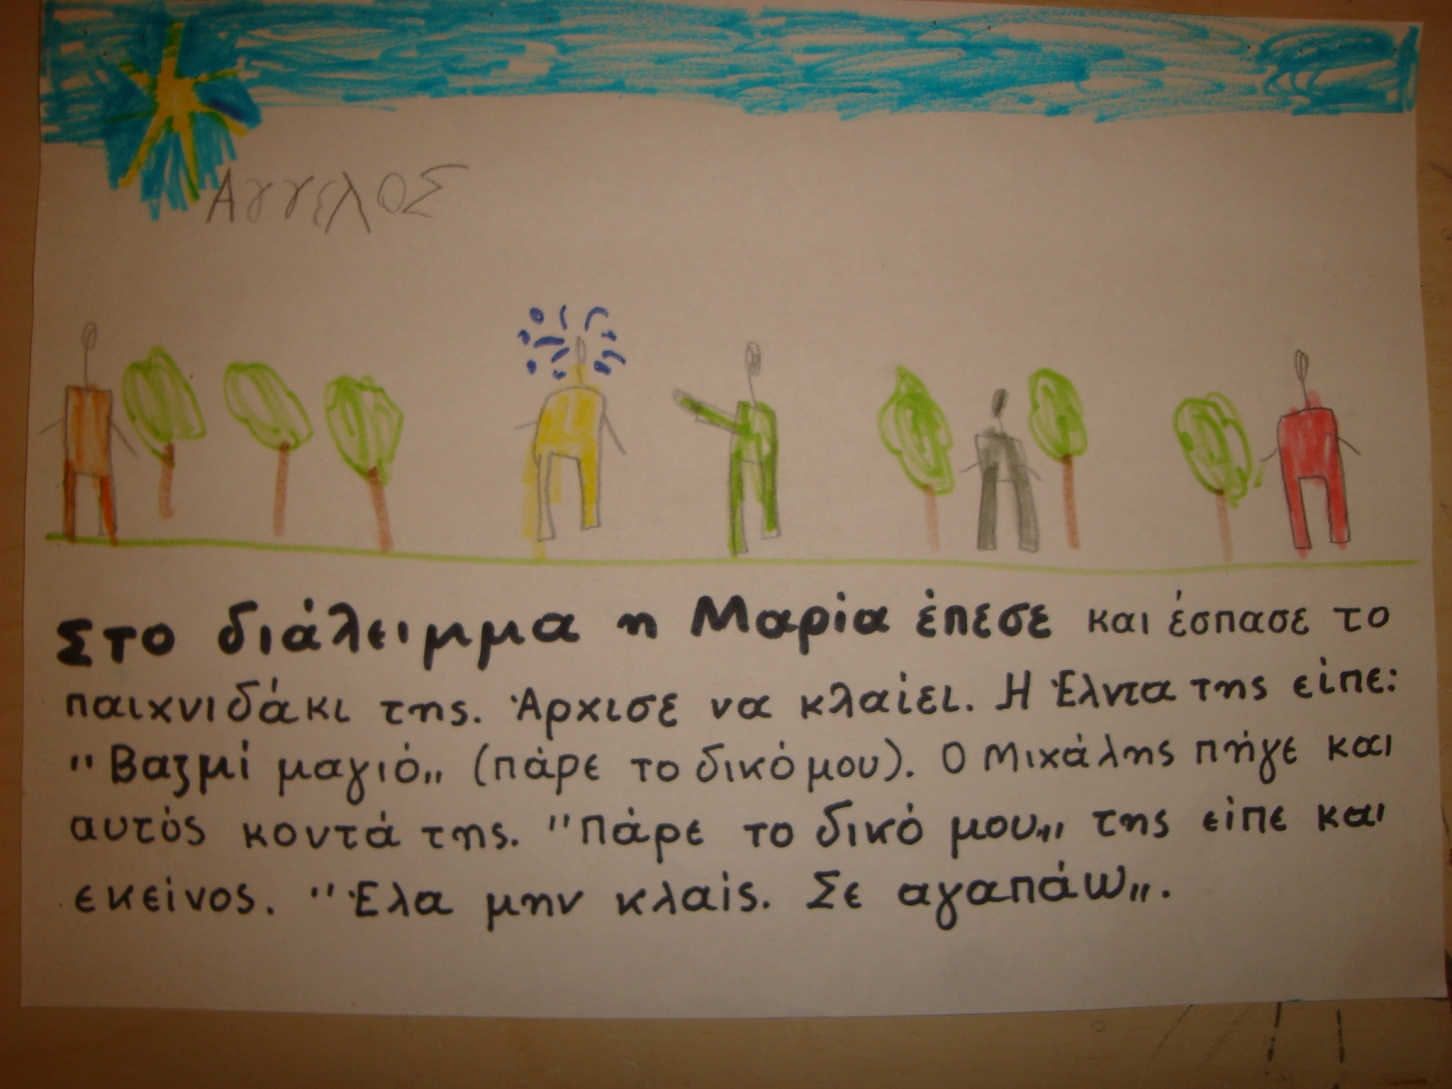 ΑγγελΟΣ
Στο διάλειμμα η Μαρία έπεσε και έσπασε το
παιχνιδάκι της. Άρχισε να κλαίει. Η Έλντα της είπε:
"Βαζμί μαγιό„ (πάρε το δικό μου). Ο Μιχάλης πήγε και
αυτός κοντά της. "Πάρε το δικό μου„ της είπε και
εκείνος. "Έλα μην κλαίς. Σε αγαπάω„.